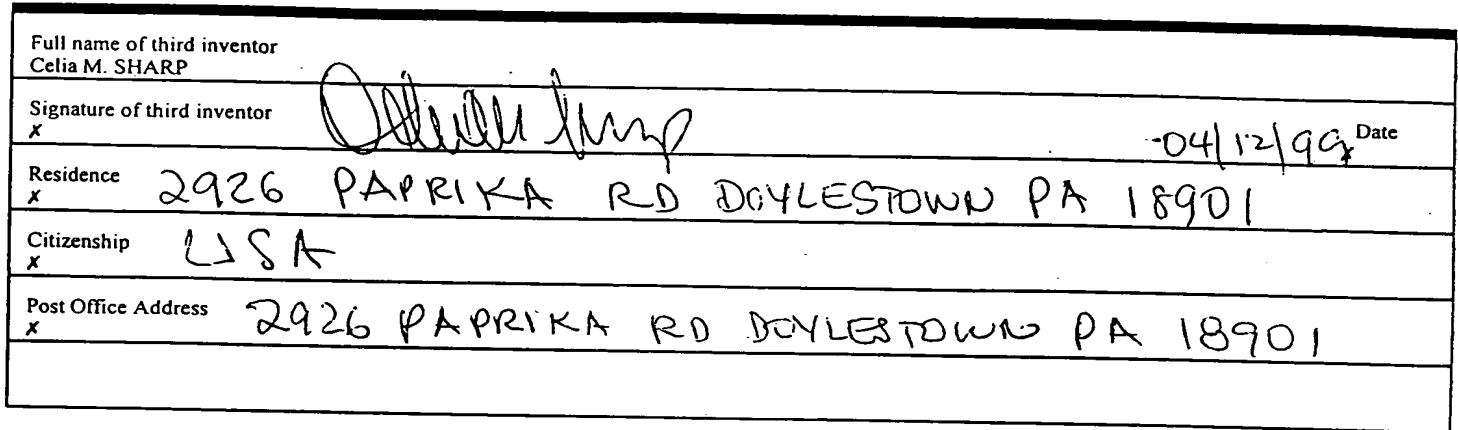 Full name of third inventor
Celia M. SHARP
Signature of third inventor
x 04/12/99 Date
Residence
x 2926 PAPRIKA RD DOYLESTOWN PA 18901
Citizenship
x USA
Post Office Address
x 2926 PAPRIKA RD DOYLESTOWN PA 18901